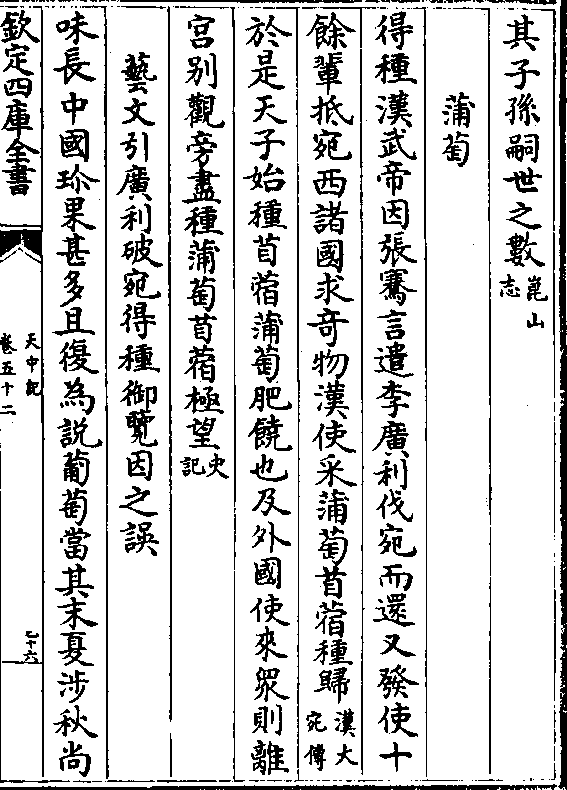 其子孫嗣世之數崑山志
蒲萄
得種漢武帝因張騫言遣李廣利伐宛而還又發使十
餘輩抵宛西諸國求奇物漢使采蒲萄苜蓿種歸漢大宛傳
於是天子始種苜蓿蒲萄肥饒也及外國使來衆則離
宫别觀旁盡種蒲萄苜蓿極望史記
藝文引廣利破宛得種御覽因之誤
味長中國珍果甚多且復為説葡萄當其末夏涉秋尚
欽定四庫全書
天中記
卷五十二
七十六